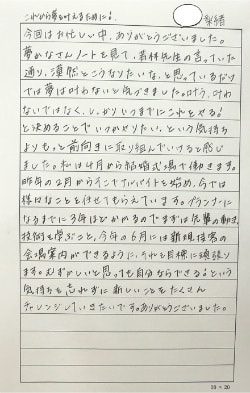 これから夢を叶えるために!
今回はお忙しい中、ありがとうございました。
夢かなさんノートを見て、若林先生の言っていた
通り、漠然とこうなりたいな、と思っているだけ
では夢は叶わないと気づきました。叶う、叶わ
ないではなく、しっかりいつまでにこれをやる!
と決めることで、いつかやりたい、という気持ち
よりもっと前向きに取り組んでいけると感じ
ました。私は4月から結婚式場で働きます。
昨年の2月からそこでバイトを始め、今では
様々なことを任せてもらえています。プランナーに
なるまでに3年ほどかかるのでまずは先輩の動き、
技術を学ぶこと、今年の6月には新規接客の
会場案内ができるように、それを目標に頑張り
ます。むずかしいと思っても自分ならできる!という
気持ちを忘れずに新しいことをたくさん
チャレンジしていきたいです。ありがとうございました。
20×20